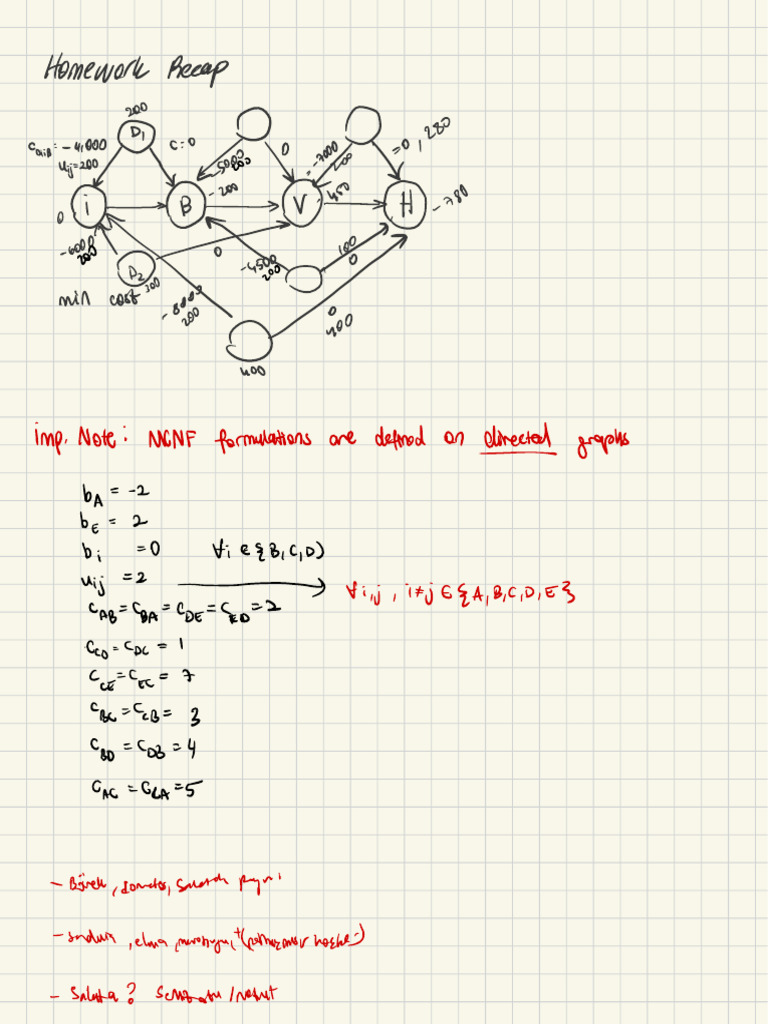 Homework Recap
200
D1
C=0
-4,000
uij=200
0
-5000
200
-7000
200
=0, 280
i
B
-200
V
-450
H
-780
0
-6000
200
D2
300
0
-4500
200
100
0
min cost
-8000
200
0
400
400
imp. Note: MCNF formulations are defined on directed graphs
bA = -2
bE = 2
bi = 0 ∀i ∈ {B,C,D}
uij = 2 → ∀i,j, i≠j ∈ {A,B,C,D,E}
cAB = cBA = cDE = cED = 2
cCD = cDC = 1
cCE = cEC = 7
cBC = cCB = 3
cBD = cDB = 4
cAC = cCA = 5
- Börek, domates,
- elma,
- Salata?